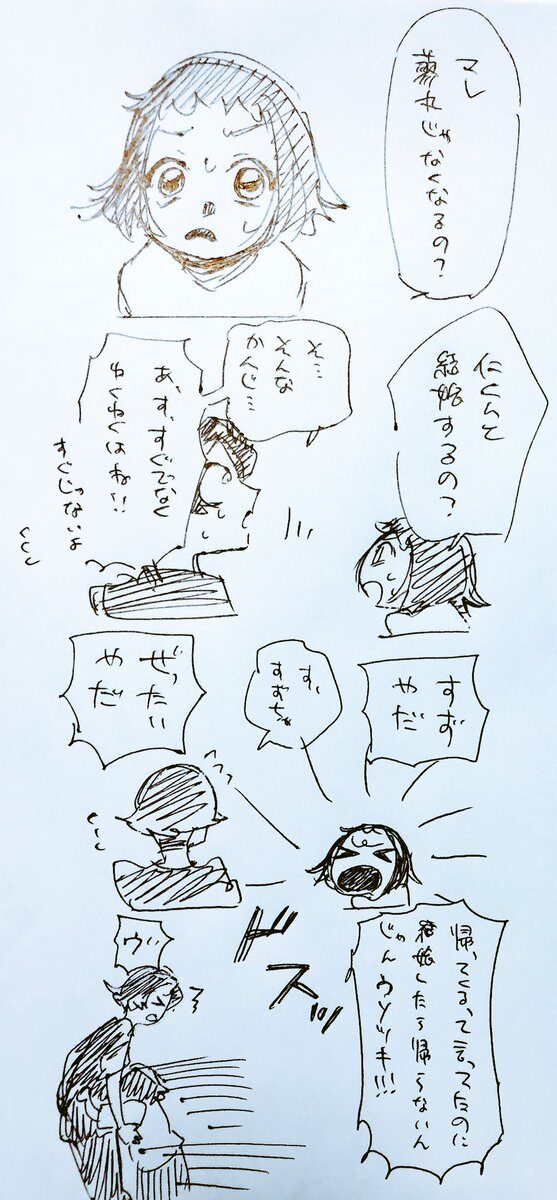 マレ
蕚丸じゃなくなるの?
仁くんと
結婚するの?
そ…
そんな
かんじ…
あ、す、すぐでなく
わくわくはね!!
すぐじゃないよ
すず
やだ
す、
すずちゃ
ぜったい
やだ
帰ってくるって言ってたのに
結婚したら帰らないん
じゃんウソツキ!!!
ドスッ
ウッ